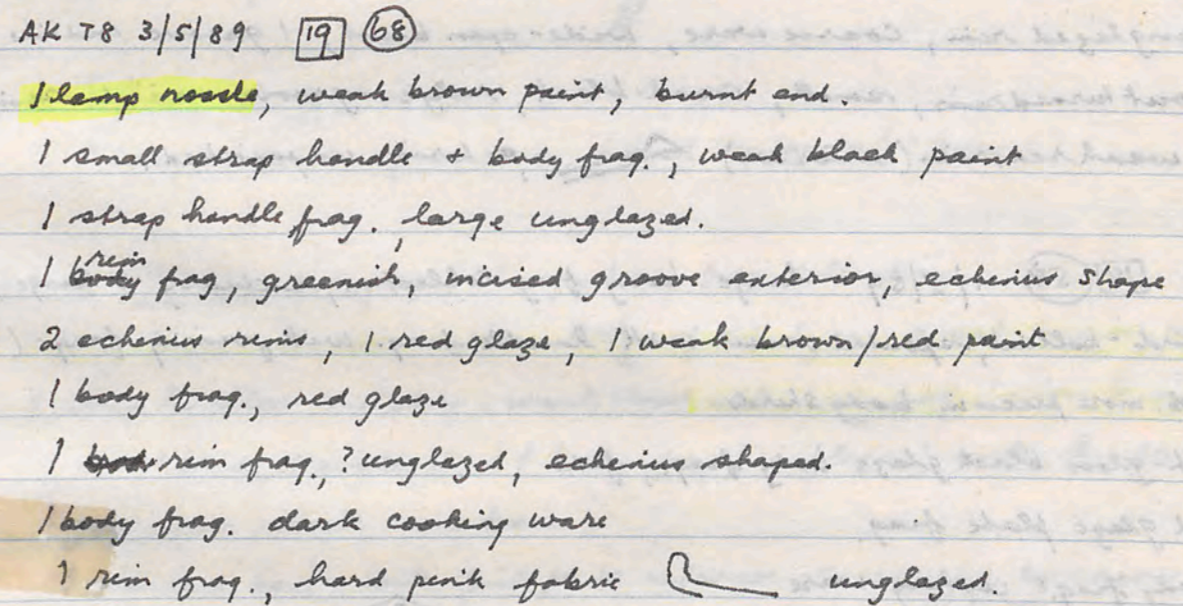 AK T8 3/5/89 19 68
1 lamp nossle, weak brown paint, burnt end.
1 small strap handle + body frag., weak black paint
1 strap handle frag., large unglazed.
1 rim frag, greenish, incised groove exterior, echinus shape
2 echinus rims, 1 red glaze, 1 weak brown/red paint
1 body frag., red glaze
1 rim frag., ? unglazed, echinus shaped.
1 body frag. dark cooking ware
1 rim frag., hard pink fabric unglazed.